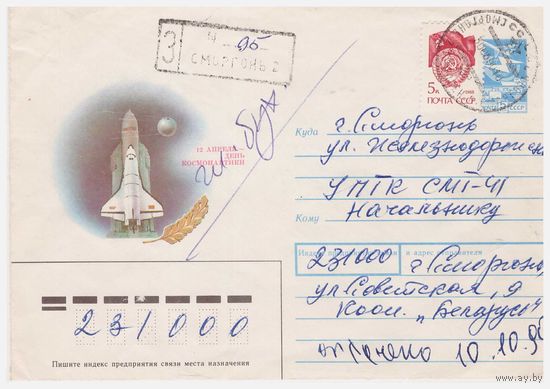 З
N 95
СМОРГОНЬ 2
5к 1988
ПОЧТА СССР
СМОРГОНЬ
СССР
12 АПРЕЛЯ
ДЕНЬ
КОСМОНАВТИКИ
Куда г. Сморгонь
ул. Железнодорожн
УМТК СМТ-41
Кому Начальнику
Индекс предприятия связи и адрес отправителя
231000 г. Сморгонь,
ул Советская, 9
Кооп. „Беларусь"
231000
Пишите индекс предприятия связи места назначения
10.10.95
www.ay.by